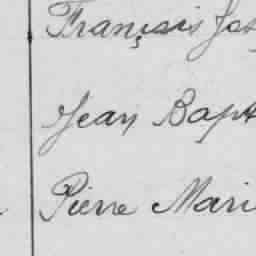 François Jos
Jean Bapt
Pierre Mari